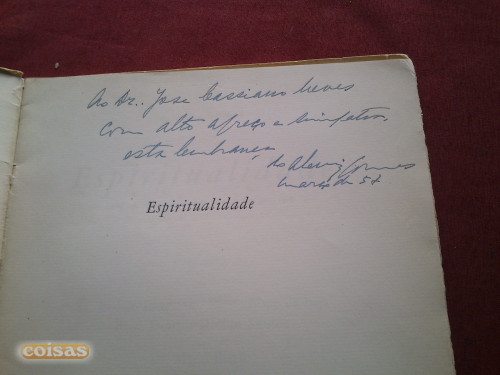 Ao Dr. José Cassiano Neves
com alto apreço e simpatia,
esta lembrança
do Gomes
março de 57
Espiritualidade
coisas